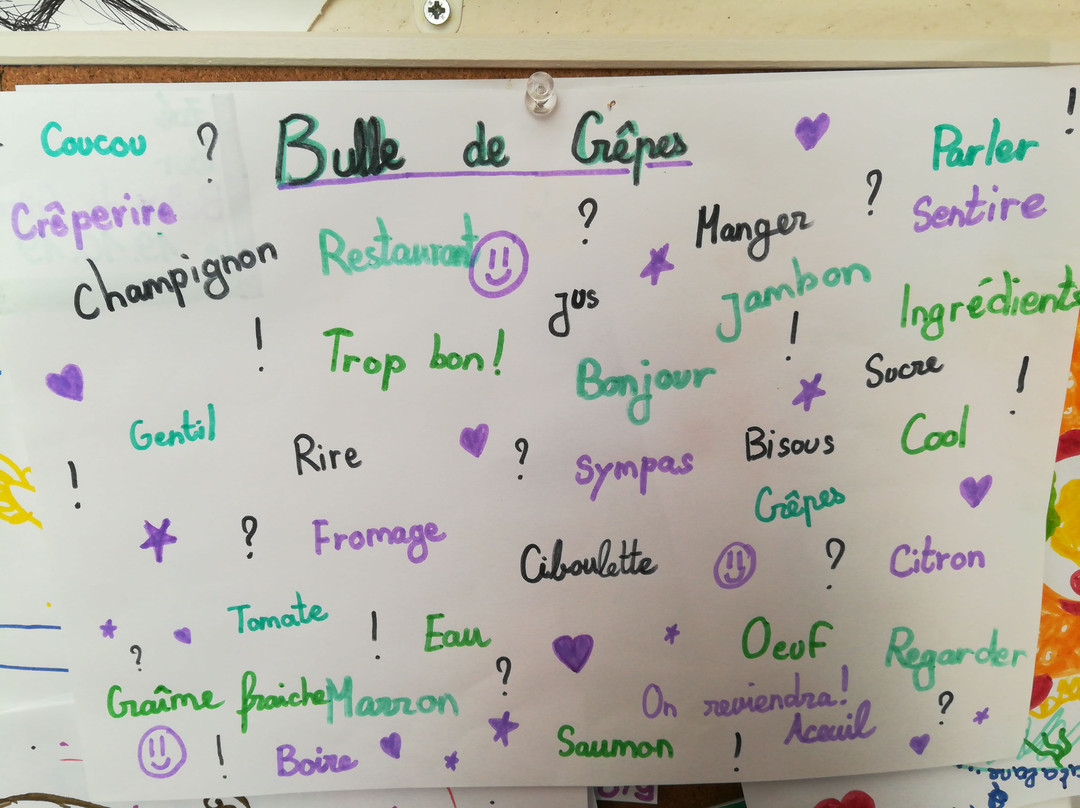 Bulle de Crêpes
Coucou ?
Parler !
Crêperire
Sentire
Manger ?
Champignon
Restaurant
?
jus
Jambon
Ingrédients
!
Trop bon !
Bonjour
!
Sucre
!
Gentil
Rire
?
Sympas
Bisous
Cool
!
?
Fromage
Crêpes
Ciboulette
?
Citron
Tomate
!
Eau
Oeuf
Regarder
?
Graîme fraiche
Marron
?
On reviendra!
Aceuil
?
!
Boire
Saumon
!